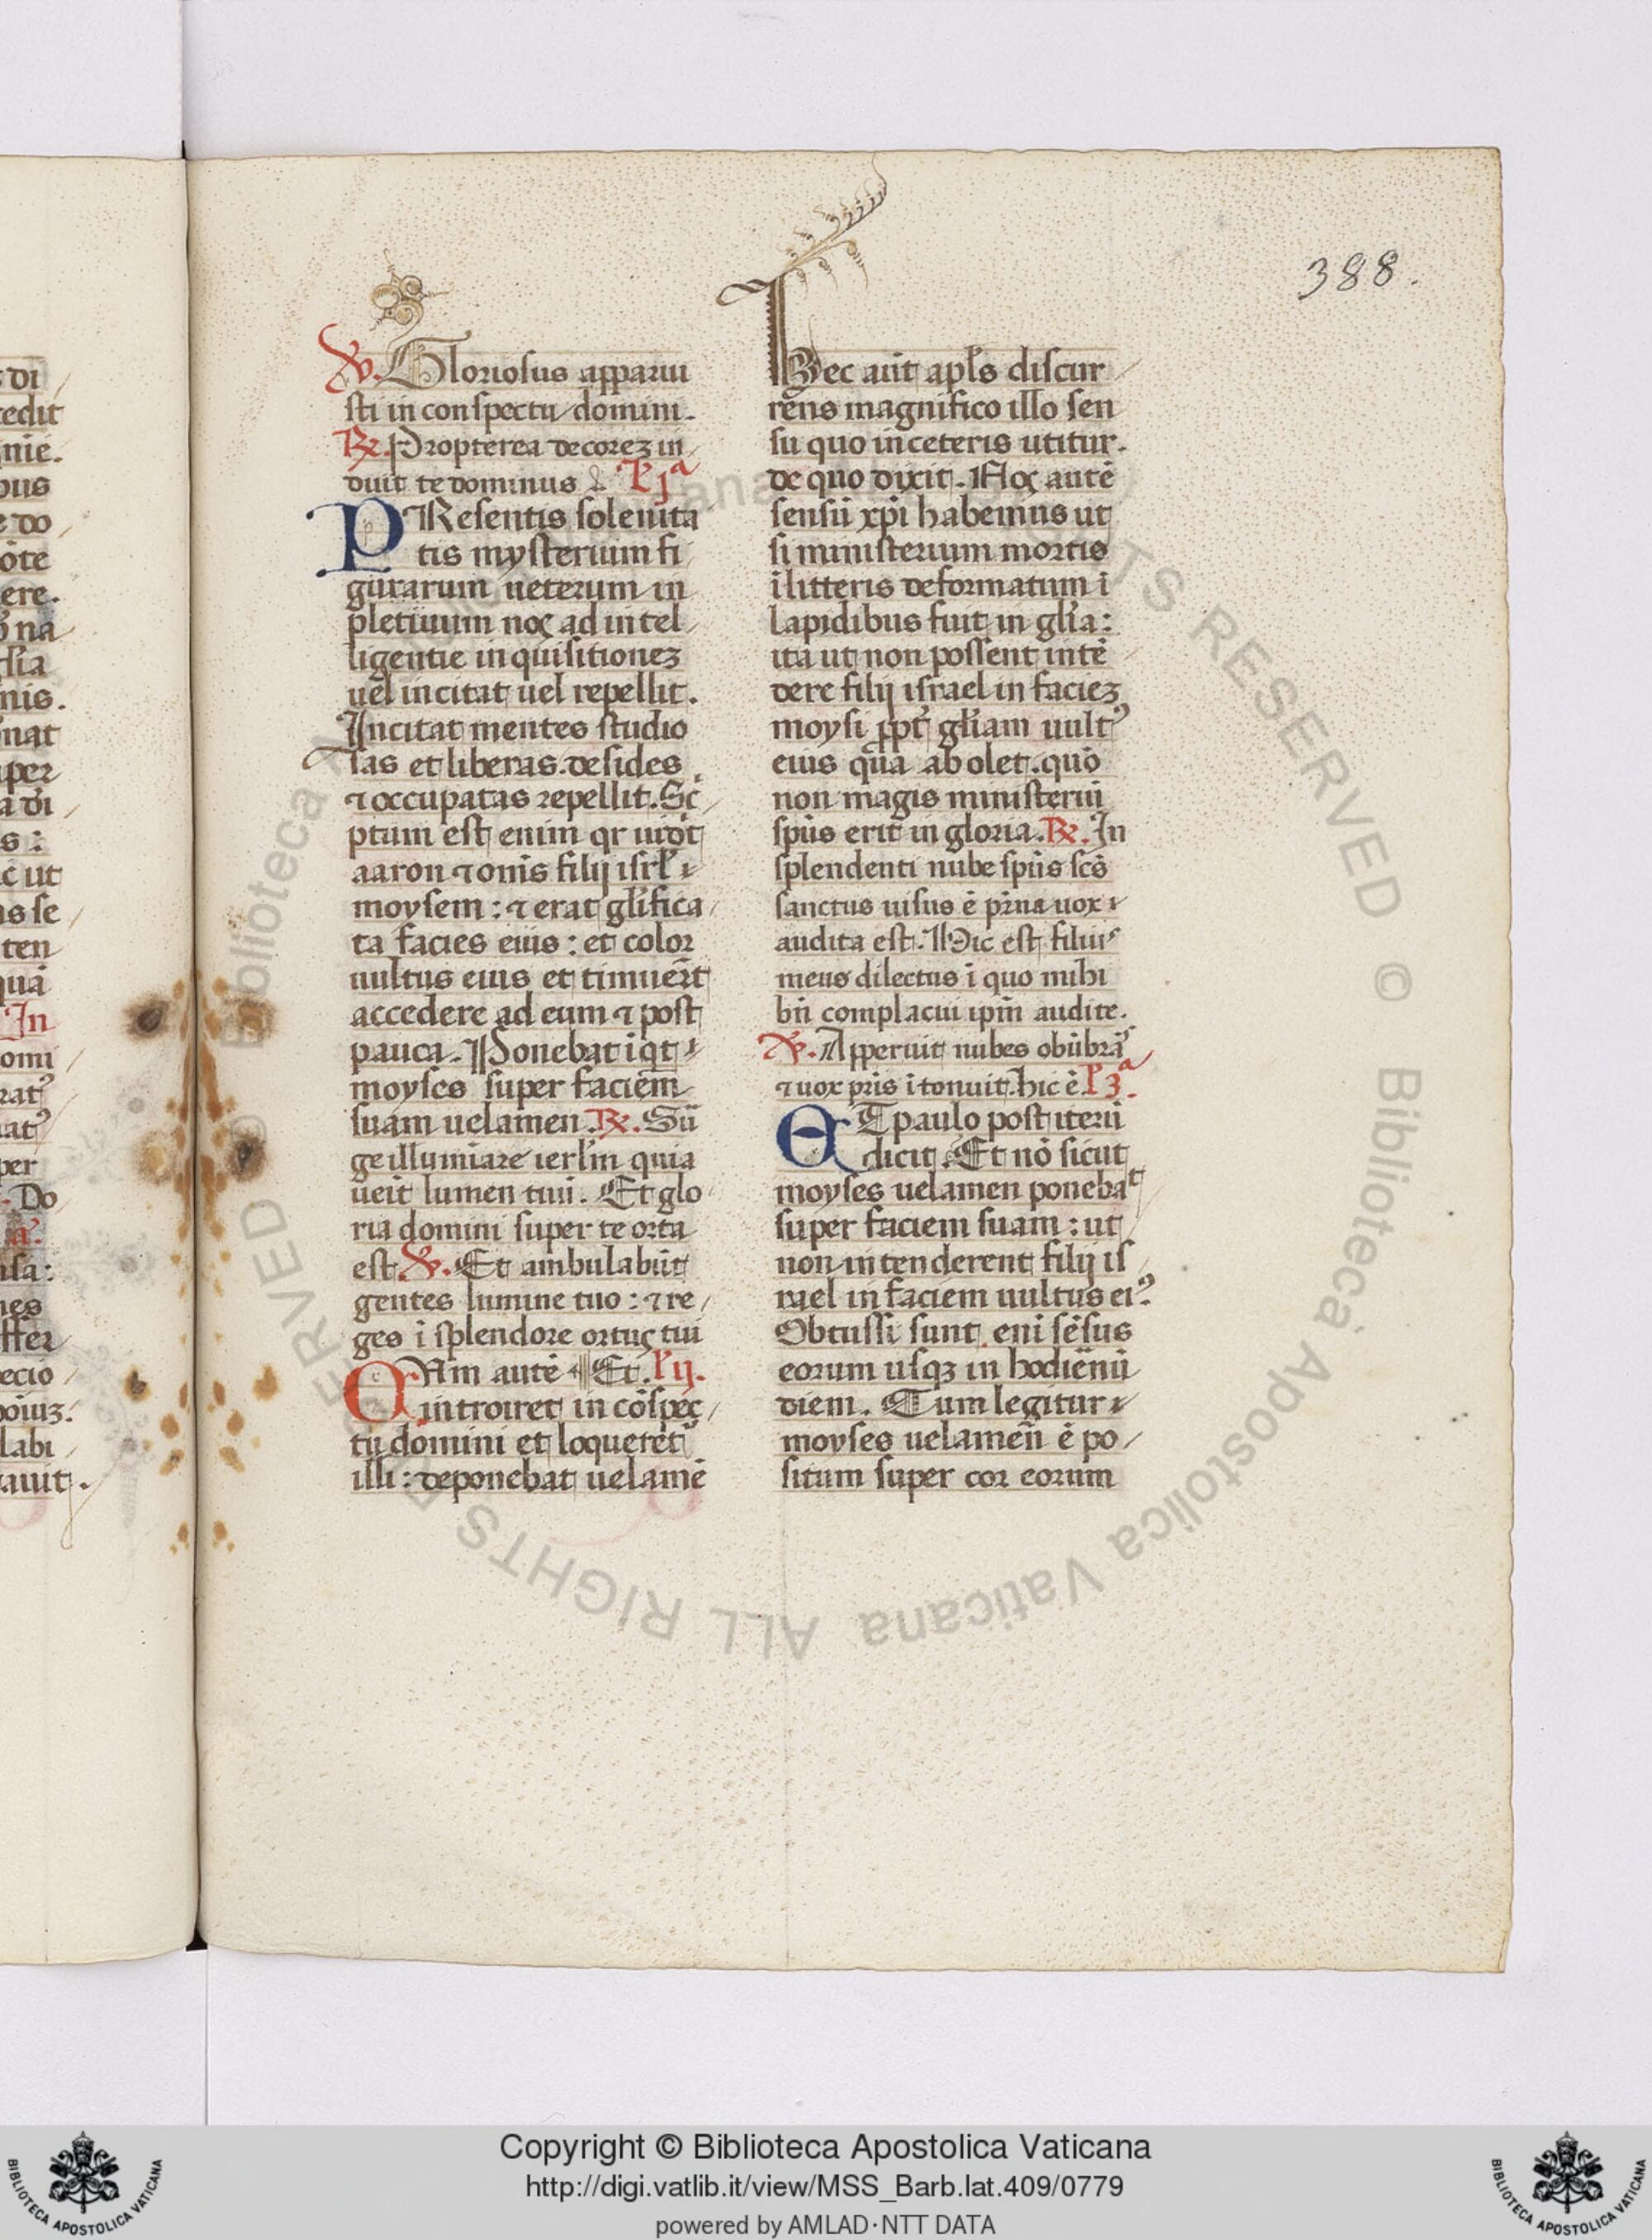 388.
℣. Gloriosus apparui
sti in conspectu domini.
℟. Propterea decorez in
duit te dominus. l' j ͣ
PResentis solenita
tis mysterium fi
gurarum ueterum in
pletiuum nos ad intel
ligentie inquisitionez
uel incitat uel repellit.
Incitat mentes studio
sas et liberas. desides
⁊ occupatas repellit. Sc̓
ptum est enim qr uidt̄
aaron ⁊ om̄s filij isrl̓
moysem: ⁊ erat gl̓ifica
ta facies eius: et color
uultus eius et timuer̄t
accedere ad eum ⁊ post
pauca. Ponebat iqt
moyses super faciem
suam uelamen. ℟. Su̅
ge illumiāre ierl̓m quia
ueīt lumen tuū. Et glo
ria domini super te orta
est ℣. Et ambulabūt
gentes lumine tuo: ⁊ re
ges ī splendore ortus tui
QAm autē Et. l' ij.
introiret in cōspec
tu domini et loqueret̄
illi: deponebat uelamē
Hec aūt apl̓s discur
rēns magnifico illo sen
su quo in ceteris utitur.
de quo dixit. Nos autē
sensū xp̄i habemus ut
si ministerium mortis
ī litteris deformatum ī
lapidibus fuit in gl̓ia:
ita ut non possent intē
dere filij israel in faciez
moysi ꝓpt̓ gl̓iam uultꝰ
eius qua abolet. quō
non magis ministeriū
sp̄us erit in gloria. ℟. In
splendenti nube sp̄us sc̄s
sanctus uisus ē p̄rna uox
audita est. Hic est filiuˢ
meus dilectus ī quo mihi
bn̄ complacui ip̄m audite.
℣. Apperuit nubes obūbrāˢ
⁊ uox pr̄is ītonuit. hic ē. l' 3 ͣ.
ET paulo post iterū
dicit. Et nō sicut
moyses uelamen ponebaᵗ
super faciem suam: ut
non intenderent filij is
rael in faciem uultus eiꝰ.
Obtussi sunt. enī sēsus
eorum usqz in hodiernū
diem. Cum legitur
moyses uelamen̄ ē po
situm super cor eorum
di
edit
nie.
pus
e do
ōte
ere.
na
lia
nis.
nat
per
a di
s:
c ut
as se
ten
quā
In
omi
ratꝰ
atꝰ
per
. Do
a.
sa:
nes
ffer
ecio
labi
auit.
Copyright © Biblioteca Apostolica Vaticana
http://digi.vatlib.it/view/MSS_Barb.lat.409/0779
powered by AMLAD·NTT DATA
BIBLIOTECA APOSTOLICA VATICANA
BIBLIOTECA APOSTOLICA VATICANA
© Biblioteca Apostolica Vaticana ALL RIGHTS RESERVED